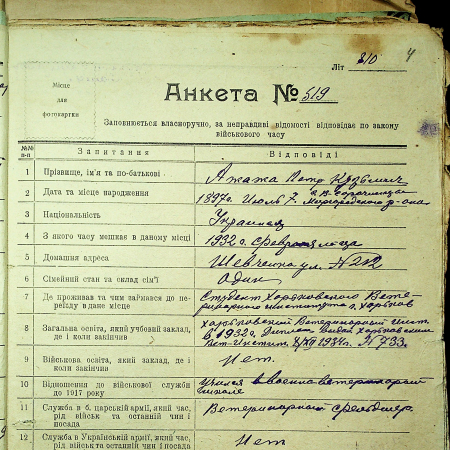 Літ 310 4
Місце
для
фотокартки
Анкета № 519
Заповнюється власноручно, за неправдиві відомості відповідає по закону
військового часу
№№ п-п Запитання Відповіді
1 Прізвище, ім'я та по-батькові Ажажа Петр Кузьмич
2 Дата та місце народження 1897 г. Июль 7.
3 Національність Украинец
4 З якого часу мешкає в даному місці 1932 г. февраля м-ца
5 Домашня адреса Шевченка ул. № 212
6 Сімейний стан та склад сім'ї один
7 Де проживав та чим займався до переїзду в даже місце Студент Харьковского Ветеринарного института г. Харьков
8 Загальна освіта, який учбовий заклад, де і коли закінчив Харьковский Ветеринарный Инст. в 1932 г. Диплом Выдан Харьковским Вет-Инстит. № 733.
9 Військова освіта, який заклад, де і коли закінчив Нет.
10 Відношення до військової служби до 1917 року Учился в военно ветеринарной школе
11 Служба в б. царській армії, який час, рід військ та останній чин і посада Ветеринарный фельдшер.
12 Служба в Українській армії, який час, рід військ та останній чин і посада Нет